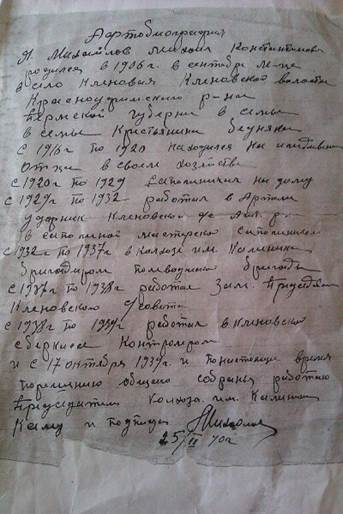 Автобиография
Я. Михайлов Михаил Константинов
родился в 1906 г. в сентябре м-це
в село Кленовия Кленовской волости
Красноуфимского р-на
Пермской Губерни в семье
в семье Крестьянина бедняка
С 1916 г по 1920 находился на
отца в своем хозяйстве
с 1920 г по 1929 на дому
с 1929 г по 1932 работал в Артели
ударник Кленовской
в сапожной мастерской
с 1932 г по 1937 г в колхозе им. Калинина
Бригадиром полеводческой бригады
с 1937 г по 1938 г работал Зам. Председ
Кленовского С/совета
с 1938 г по 1939 г работал в Кленовской
сберкассе Контролером
и с 17 октября 1939 г. и по настоящее время
решению общего собранья работаю
Председателем Колхоза им. Калинина
К сему и подпись Михайлов
25/II 40 г